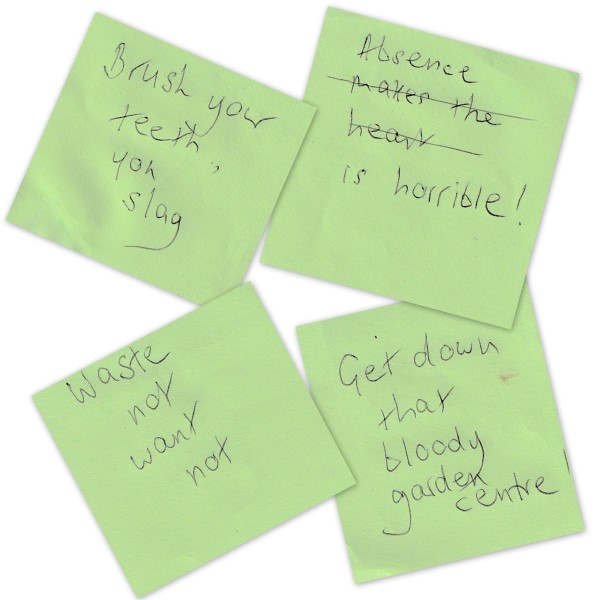 Brush your
teeth,
you
slag
Absence
makes the
heart
is horrible!
Waste
not
want
not
Get down
that
bloody
garden
centre!